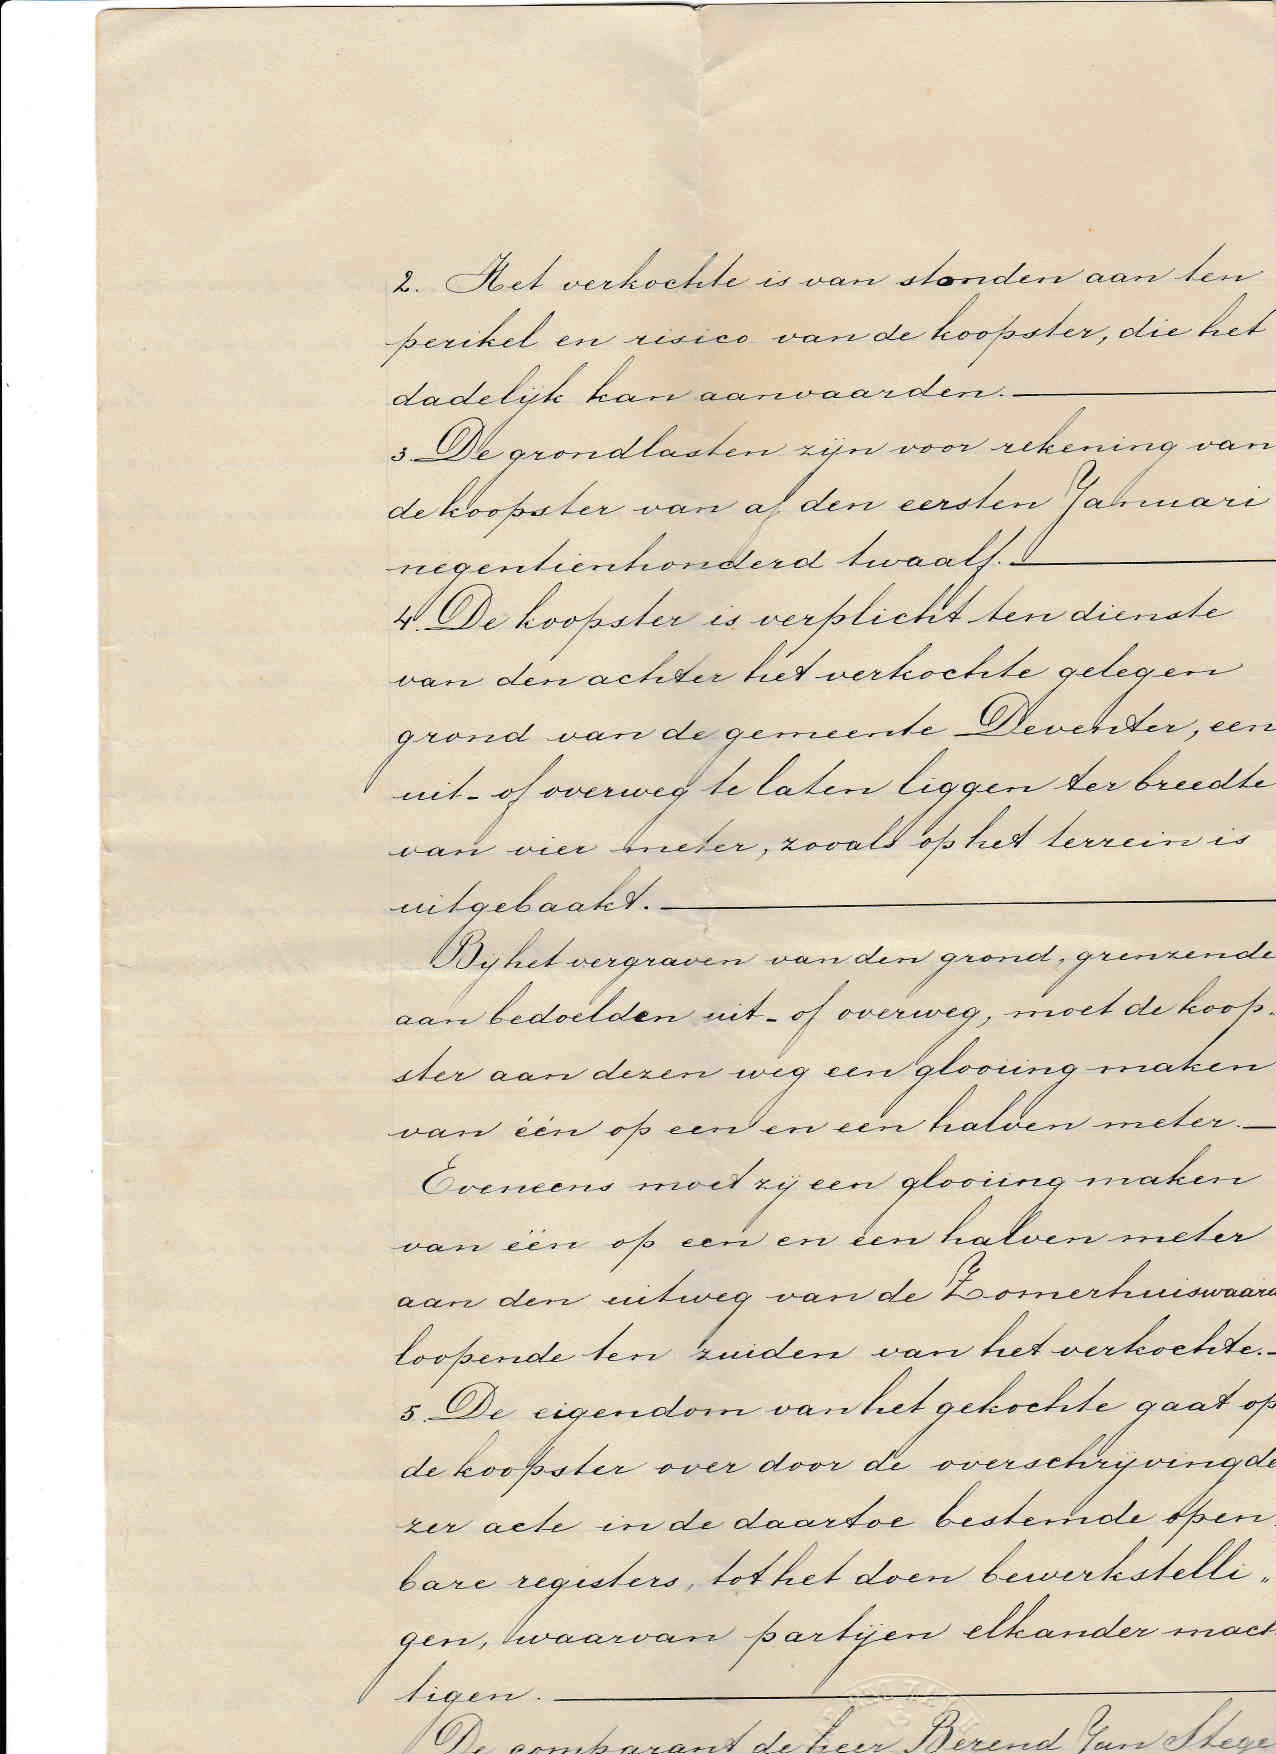 2. Het verkochte is van stonden aan ten
perikel en risico van de koopster, die het
dadelijk kan aanvaarden.
3. De grondlasten zijn voor rekening van
de koopster van af den eersten Januari
negentienhonderd twaalf.
4. De koopster is verplicht ten dienste
van den achter het verkochte gelegen
grond van de gemeente Deventer, een
uit- of overweg te laten liggen ter breedte
van vier meter, zooals op het terrein is
uitgebaakt.
Bij het vergraven van den grond, grenzende
aan bedoelden uit- of overweg, moet de koop-
ster aan dezen weg een glooiing maken
van één op een en een halven meter.
Eveneens moet zij een glooiing maken
van één op een en een halven meter
aan den uitweg van de Zomerhuiswaard
loopende ten zuiden van het verkochte.
5. De eigendom van het gekochte gaat op
de koopster over door de overschrijving de
zer acte in de daartoe bestemde open
bare registers, tot het doen bewerkstelli„
gen, waarvan partijen elkander mach
tigen.
De comparant de heer Berend Jan Stege